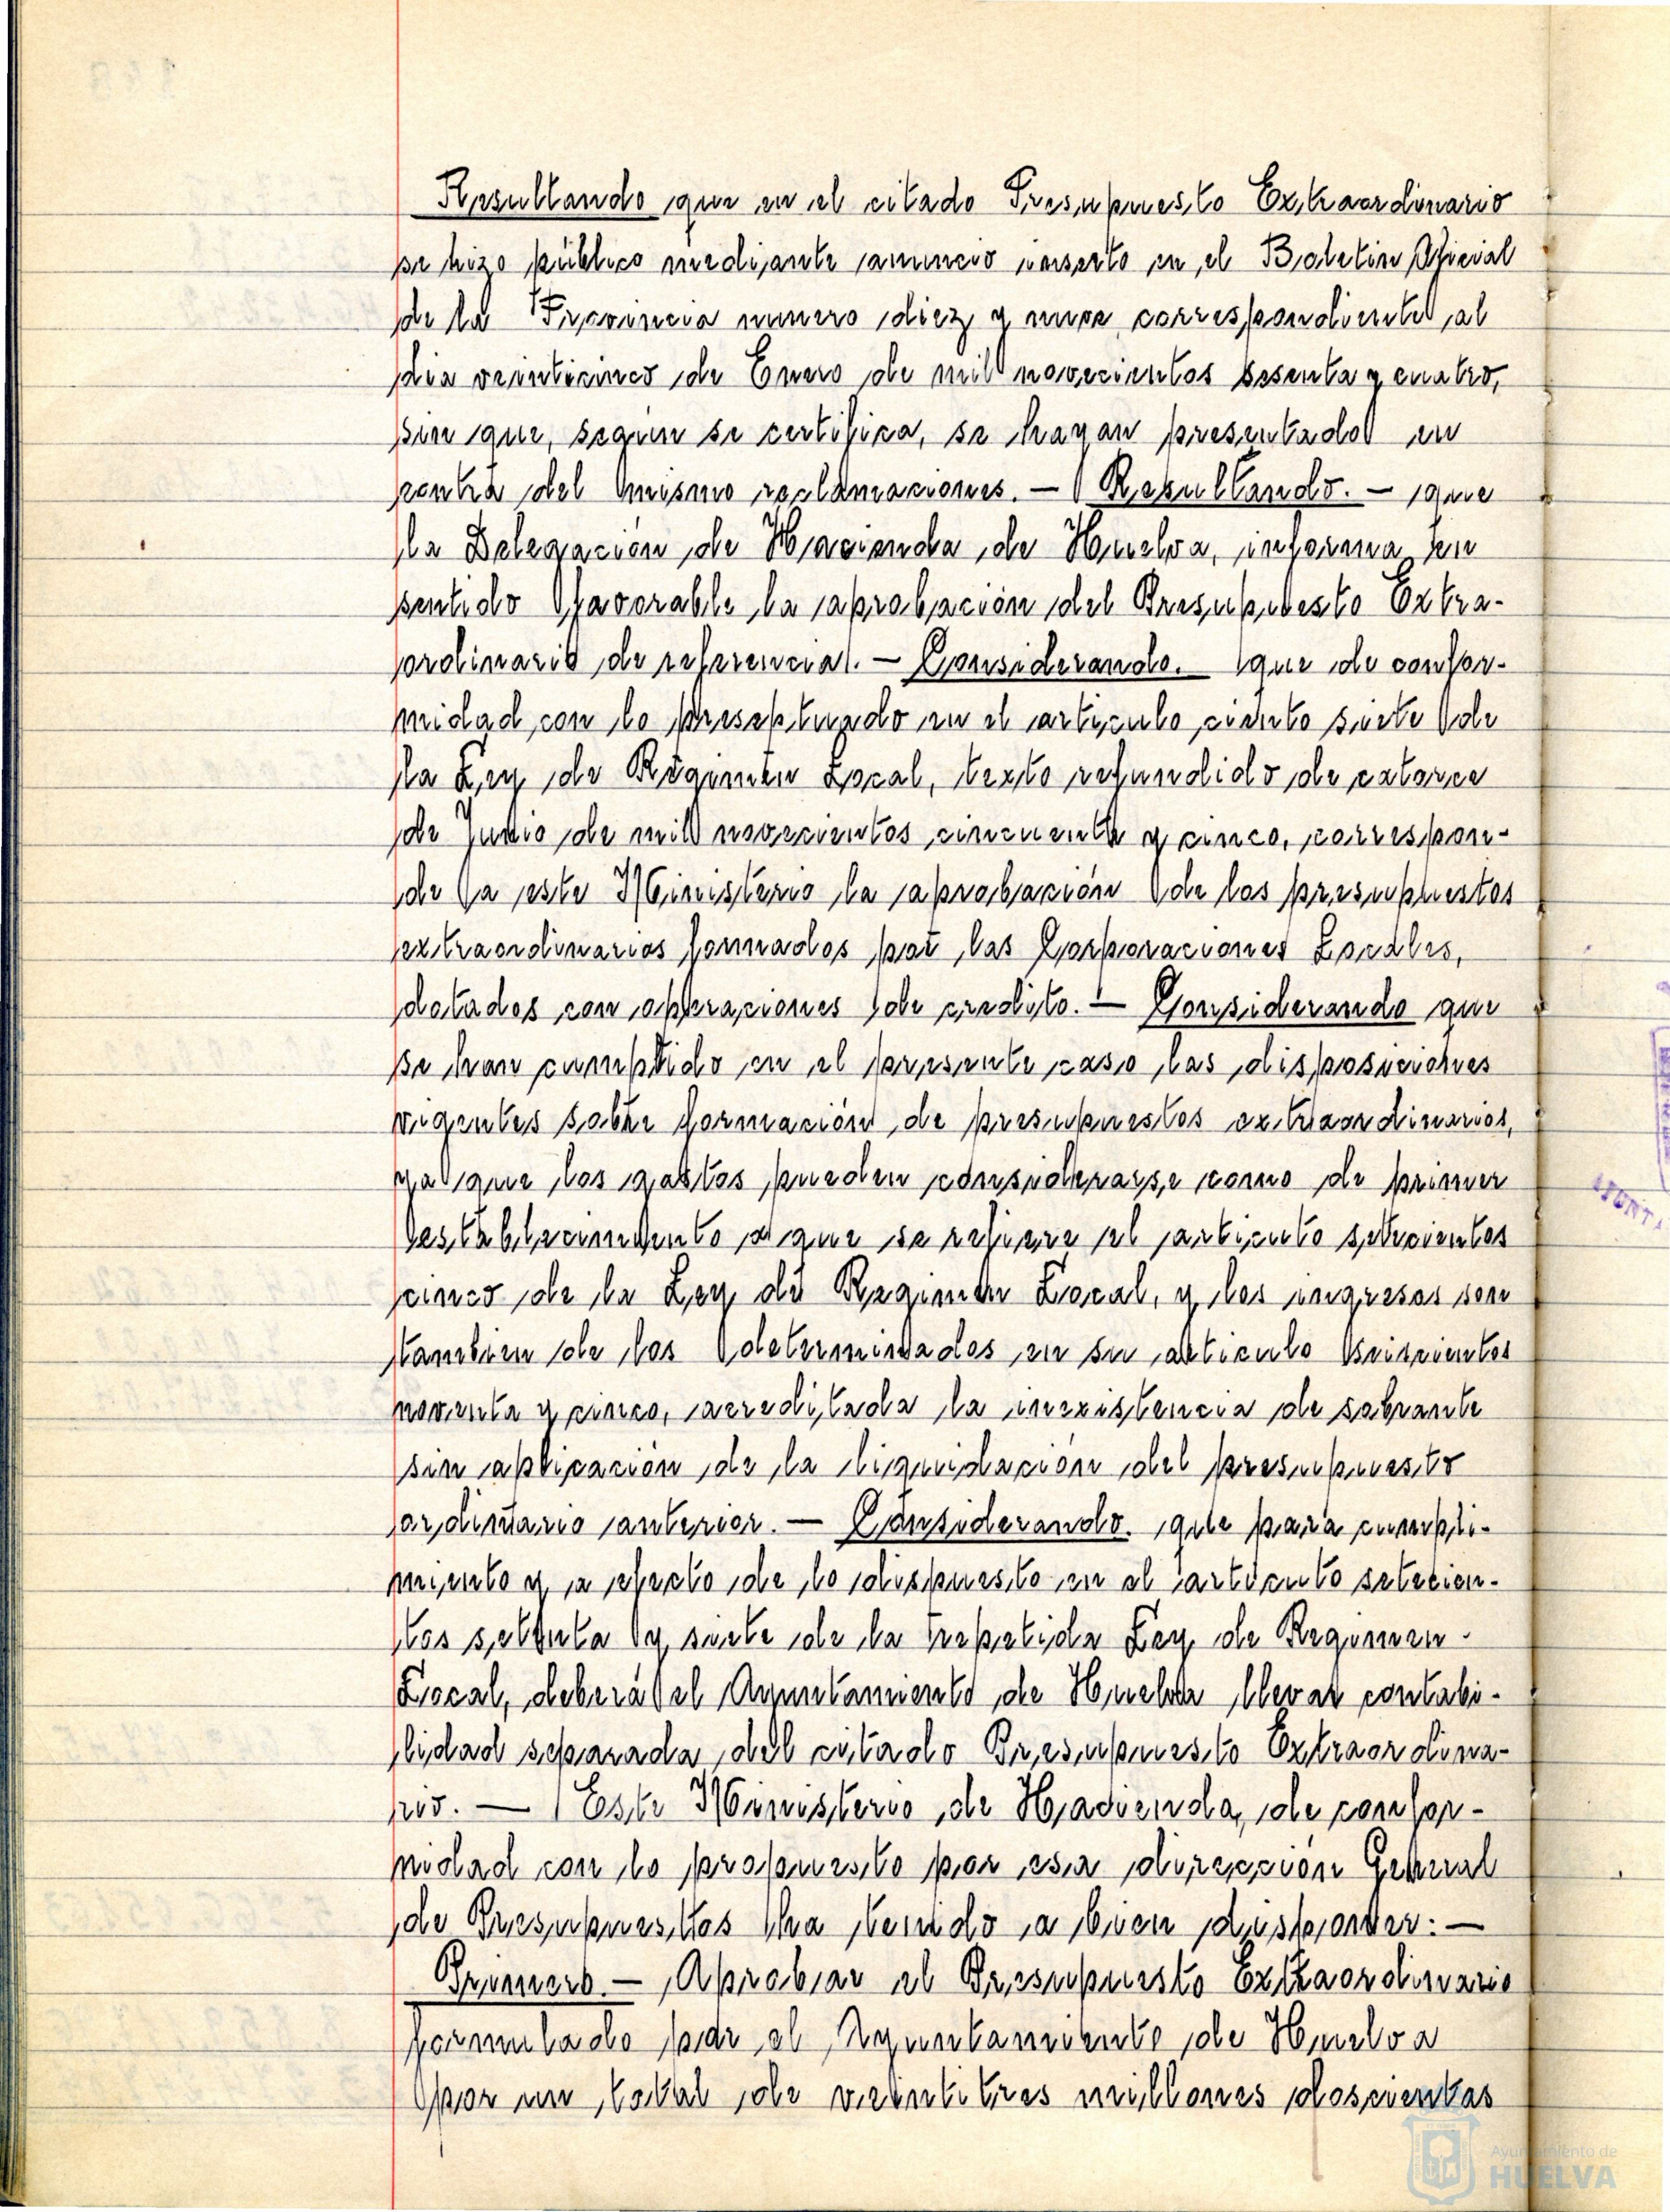 Resultando que en el citado Presupuesto Extraordinario
se hizo público mediante anuncio inserto en el Boletin Oficial
de la Provincia numero diez y nueve correspondiente al
dia veinticinco de Enero de mil novecientos sesenta y cuatro,
sin que, segun se certifica, se hayan presentado en
contra del mismo reclamaciones. — Resultando. — que
la Delegación de Hacienda de Huelva, informa en
sentido favorable la aprobación del Presupuesto Extra-
ordinario de referencia. — Considerando. que de confor-
midad con lo preseptuado en el articulo ciento siete de
la Ley de Régimen Local, texto refundido de catorce
de Junio de mil novecientos cincuenta y cinco, correspon-
de a este Ministerio la aprobación de los presupuestos
extraordinarios formados por las Corporaciones Locales,
dotados con operaciones de credito. — Considerando que
se han cumplido en el presente caso las disposiciones
vigentes sobre formación de presupuestos extraordinarios,
ya que los gastos pueden considerarse como de primer
establecimiento a que se refiere el articulo setecientos
cinco de la Ley de Regimen Local, y los ingresos son
tambien de los determinados en su articulo seiscientos
noventa y cinco, acreditada la inexistencia de sobrante
sin aplicación de la liquidacion del presupuesto
ordinario anterior. — Considerando. que para cumpli-
miento y a efecto de lo dispuesto en el articulo setecien-
tos setenta y siete de la repetida Ley de Regimen
Local, deberá el Ayuntamiento de Huelva llevar contabi-
lidad separada del citado Presupuesto Extraordina-
rio. — Este Ministerio de Hacienda, de confor-
midad con lo propuesto por esa dirección General
de Presupuestos ha tenido a bien disponer: —
Primero. — Aprobar el Presupuesto Extraordinario
formulado por el Ayuntamiento de Huelva
por un total de veintitres millones doscientas
Ayuntamiento de
HUELVA